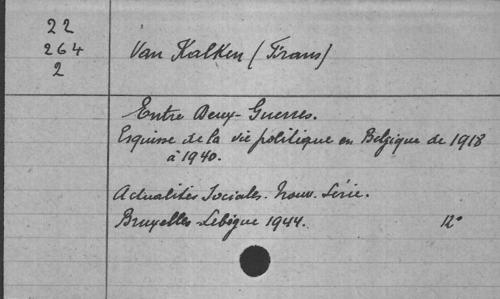 22
264
2
Van Kalken (Frans)
Entre Deux-Guerres.
Esquisse de la vie politique en Belgique de 1918
à 1940.
Actualités Sociales. Nouv. Série.
Bruxelles-Lebègue 1944. 12°